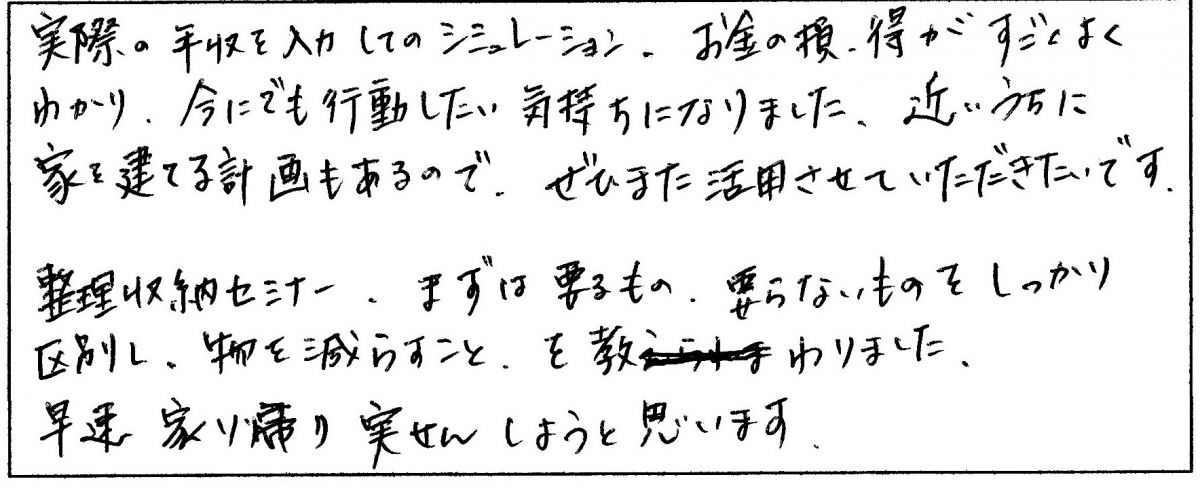 実際の年収を入力してのシミュレーション、お金の損、得がすごくよく
わかり、今にでも行動したい気持ちになりました、近いうちに
家を建てる計画もあるので、ぜひまた活用させていただきたいです.
整理収納セミナー、まずは要るもの、要らないものをしっかり
区別し、物を減らすこと、を教わりました、
早速 家り帰り 実せんしようと思います.